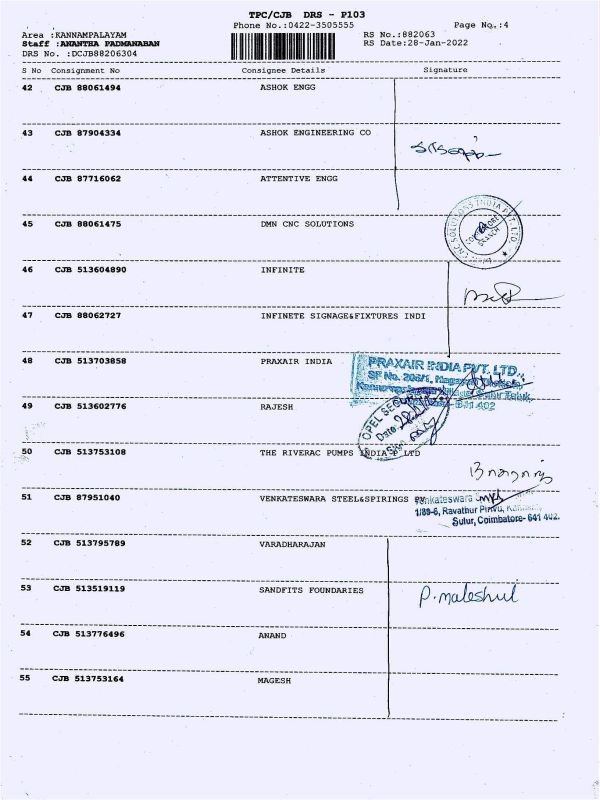 TPC/CJB DRS - P103
Phone No.:0422-3505555 Page No.:4
Area :KANNAMPALAYAM RS No.:882063
Staff :ANANTHA PADMANABAN RS Date:28-Jan-2022
DRS No. :DCJB88206304
S No Consignment No Consignee Details Signature
42 CJB 88061494 ASHOK ENGG
43 CJB 87904334 ASHOK ENGINEERING CO
44 CJB 87716062 ATTENTIVE ENGG
45 CJB 88061475 DMN CNC SOLUTIONS
CNC SOLUTIONS INDIA PVT. LTD.
BRANCH
46 CJB 513604890 INFINITE
47 CJB 88062727 INFINETE SIGNAGE&FIXTURES INDI
48 CJB 513703858 PRAXAIR INDIA
PRAXAIR INDIA PVT. LTD.,
SF No. 206/1,
49 CJB 513602776 RAJESH
OPEL SECURITY
Date
Sign
50 CJB 513753108 THE RIVERAC PUMPS INDIA P LTD
51 CJB 87951040 VENKATESWARA STEEL&SPIRINGS
Venkateswara
1/89-6, Ravathur Pirivu,
Sulur, Coimbatore- 641 402.
52 CJB 513795789 VARADHARAJAN
53 CJB 513519119 SANDFITS FOUNDARIES
P.
54 CJB 513776496 ANAND
55 CJB 513753164 MAGESH